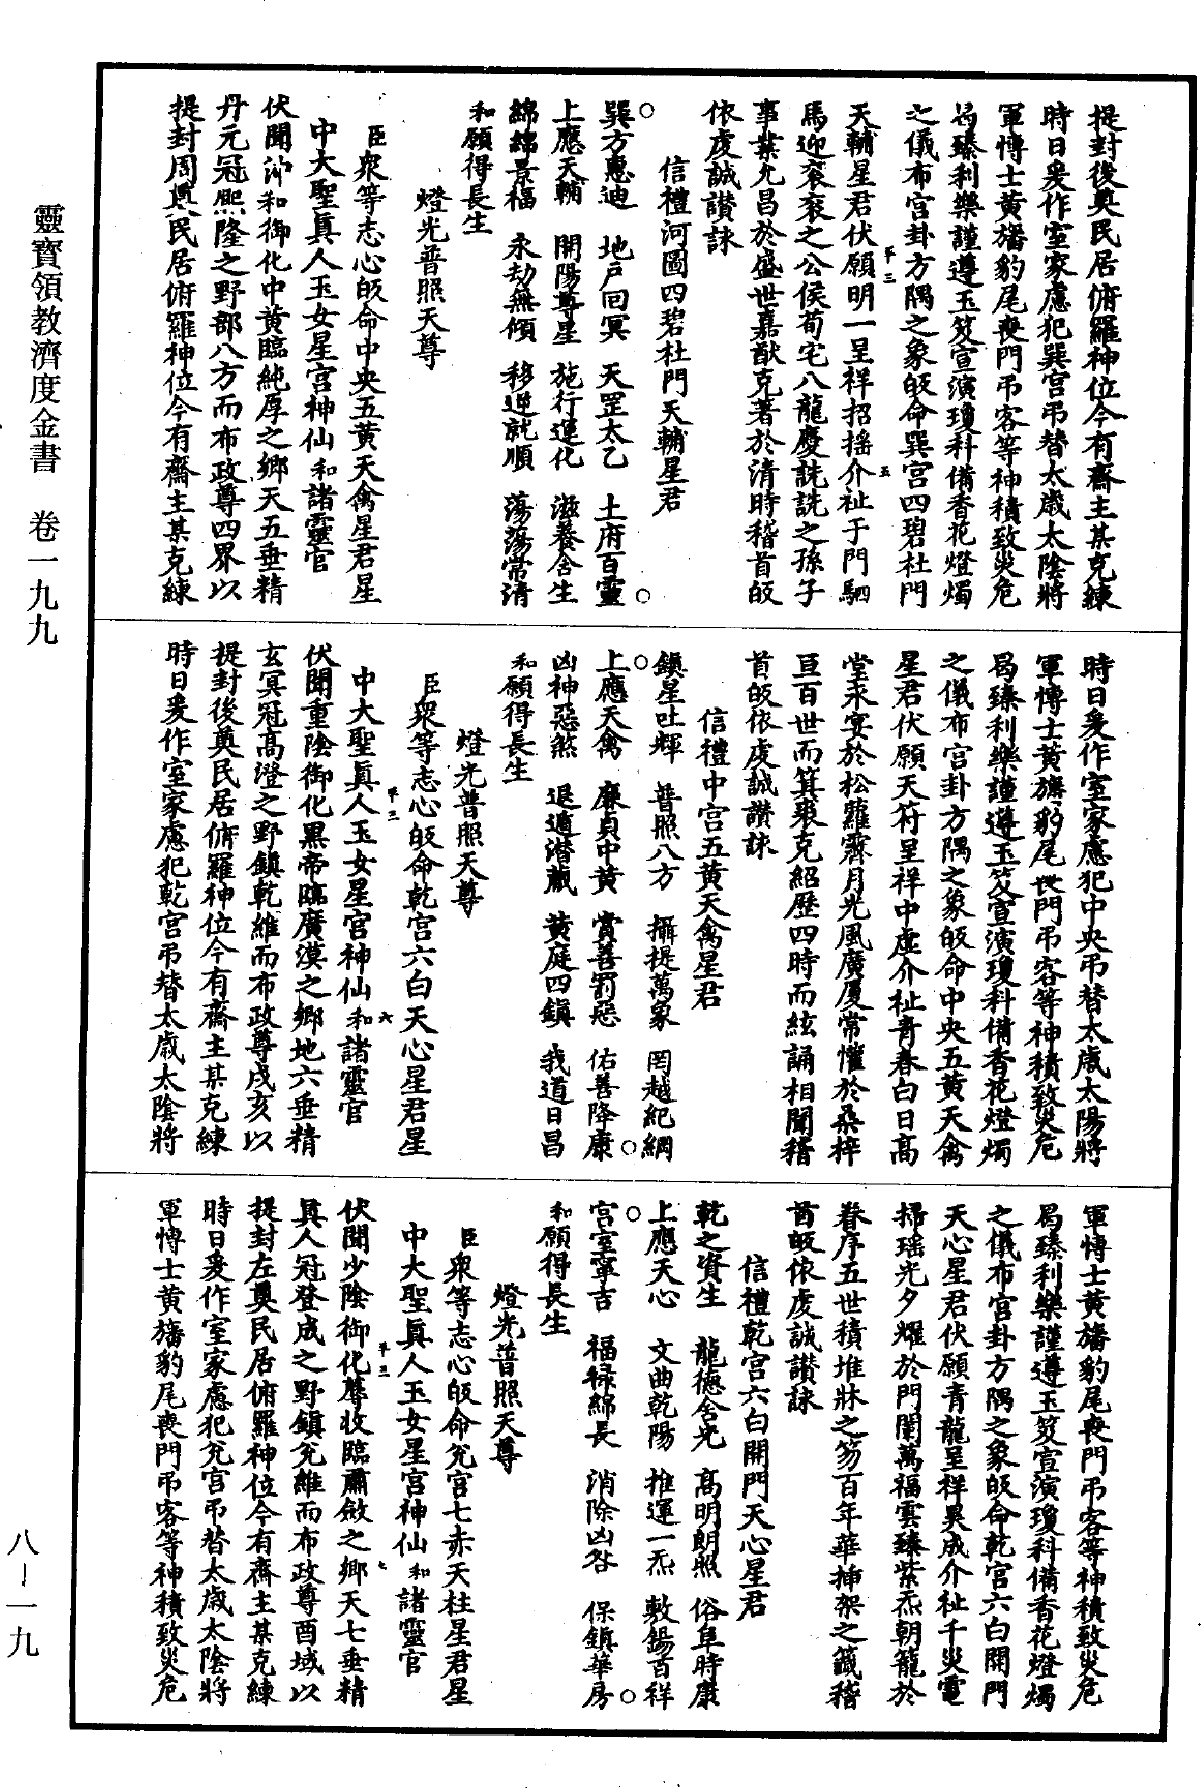 提封後奠民居俯羅神位今有齋主某克練
時日爰作室家慮犯巽宮弔替太歲太陰將
軍博士黃旛豹尾喪門弔客等神積致災危
曷臻利樂謹遵玉笈宣演瓊科備香花燈燭
之儀布宮卦方隅之象皈命巽宮四碧杜門
天輔星君伏願明一呈祥招搖介祉于門駟
馬迎袞袞之公侯荀宅八龍慶詵詵之孫子
事業允昌於盛世嘉猷克著於清時稽首皈
依虔誠讚詠
信禮河圖四碧杜門天輔星君
○巽方惠迪 地戶回冥 天罡太乙 土府百靈○
上應天輔 開陽尊星 施行運化 滋養含生
綿綿景福 永劫無傾 移逆就順 蕩蕩常清
和願得長生
燈光普照天尊
臣眾等志心皈命中央五黃天禽星君星
中大聖真人玉女星宮神仙和諸靈官
伏聞沖和御化中黃臨純厚之鄉天五垂精
丹元冠熙隆之野部八方而布政尊四界以
提封周奠民居俯羅神位今有齋主某克練
時日爰作室家慮犯中央弔替太歲太陽將
軍博士黃旛豹尾喪門弔客等神積致災危
曷臻利樂謹遵玉笈宣演瓊科備香花燈燭
之儀布宮卦方隅之象皈命中央五黃天禽
星君伏願天符呈祥中虛介祉青春白日高
堂永宴於松蘿霽月光風廣廈常懽於桑梓
亘百世而箕裘克紹歷四時而絃誦相聞稽
首皈依虔誠讚詠
信禮中宮五黃天禽星君
鎮星吐輝 普照八方 攝提萬象 罔越紀綱
○上應天禽 廉貞中黃 賞善罰惡 佑善降康○
凶神惡煞 退遁潛藏 黃庭四鎮 我道日昌
和願得長生
燈光普照天尊
臣眾等志心皈命乾宮六白天心星君星
中大聖真人玉女星宮神仙和諸靈官
伏聞重陰御化黑帝臨廣漠之鄉地六垂精
玄冥冠高澄之野鎮乾維而布政尊戌亥以
提封後奠民居俯羅神位今有齋主某克練
時日爰作室家慮犯乾宮弔替太歲太陰將
軍博士黃旛豹尾喪門弔客等神積致災危
曷臻利樂謹遵玉笈宣演瓊科備香花燈燭
之儀布宮卦方隅之象皈命乾宮六白開門
天心星君伏願青龍呈祥異成介祉千災電
掃瑤光夕耀於門闌萬福雲臻紫炁朝籠於
眷序五世積堆牀之笏百年華插架之籤稽
首皈依虔誠讚詠
信禮乾宮六白開門天心星君
乾之資生 龍德含光 高明朗照 俗阜時康
上應天心 文曲乾陽 推運一炁 敷錫百祥
○宮室寧吉 福祿綿長 消除凶咎 保鎮華房○
和願得長生
燈光普照天尊
臣眾等志心皈命兌宮七赤天柱星君星
中大聖真人玉女星宮神仙和諸靈官
伏聞少陰御化蓐收臨肅斂之鄉天七垂精
真人冠登成之野鎮兌維而布政尊酉域以
提封左奠民居俯羅神位今有齋主某克練
時日爰作室家慮犯兌宮弔替太歲太陰將
軍博士黃旛豹尾喪門弔客等神積致災危
靈寶領教濟度金書 卷一九九
八—一九